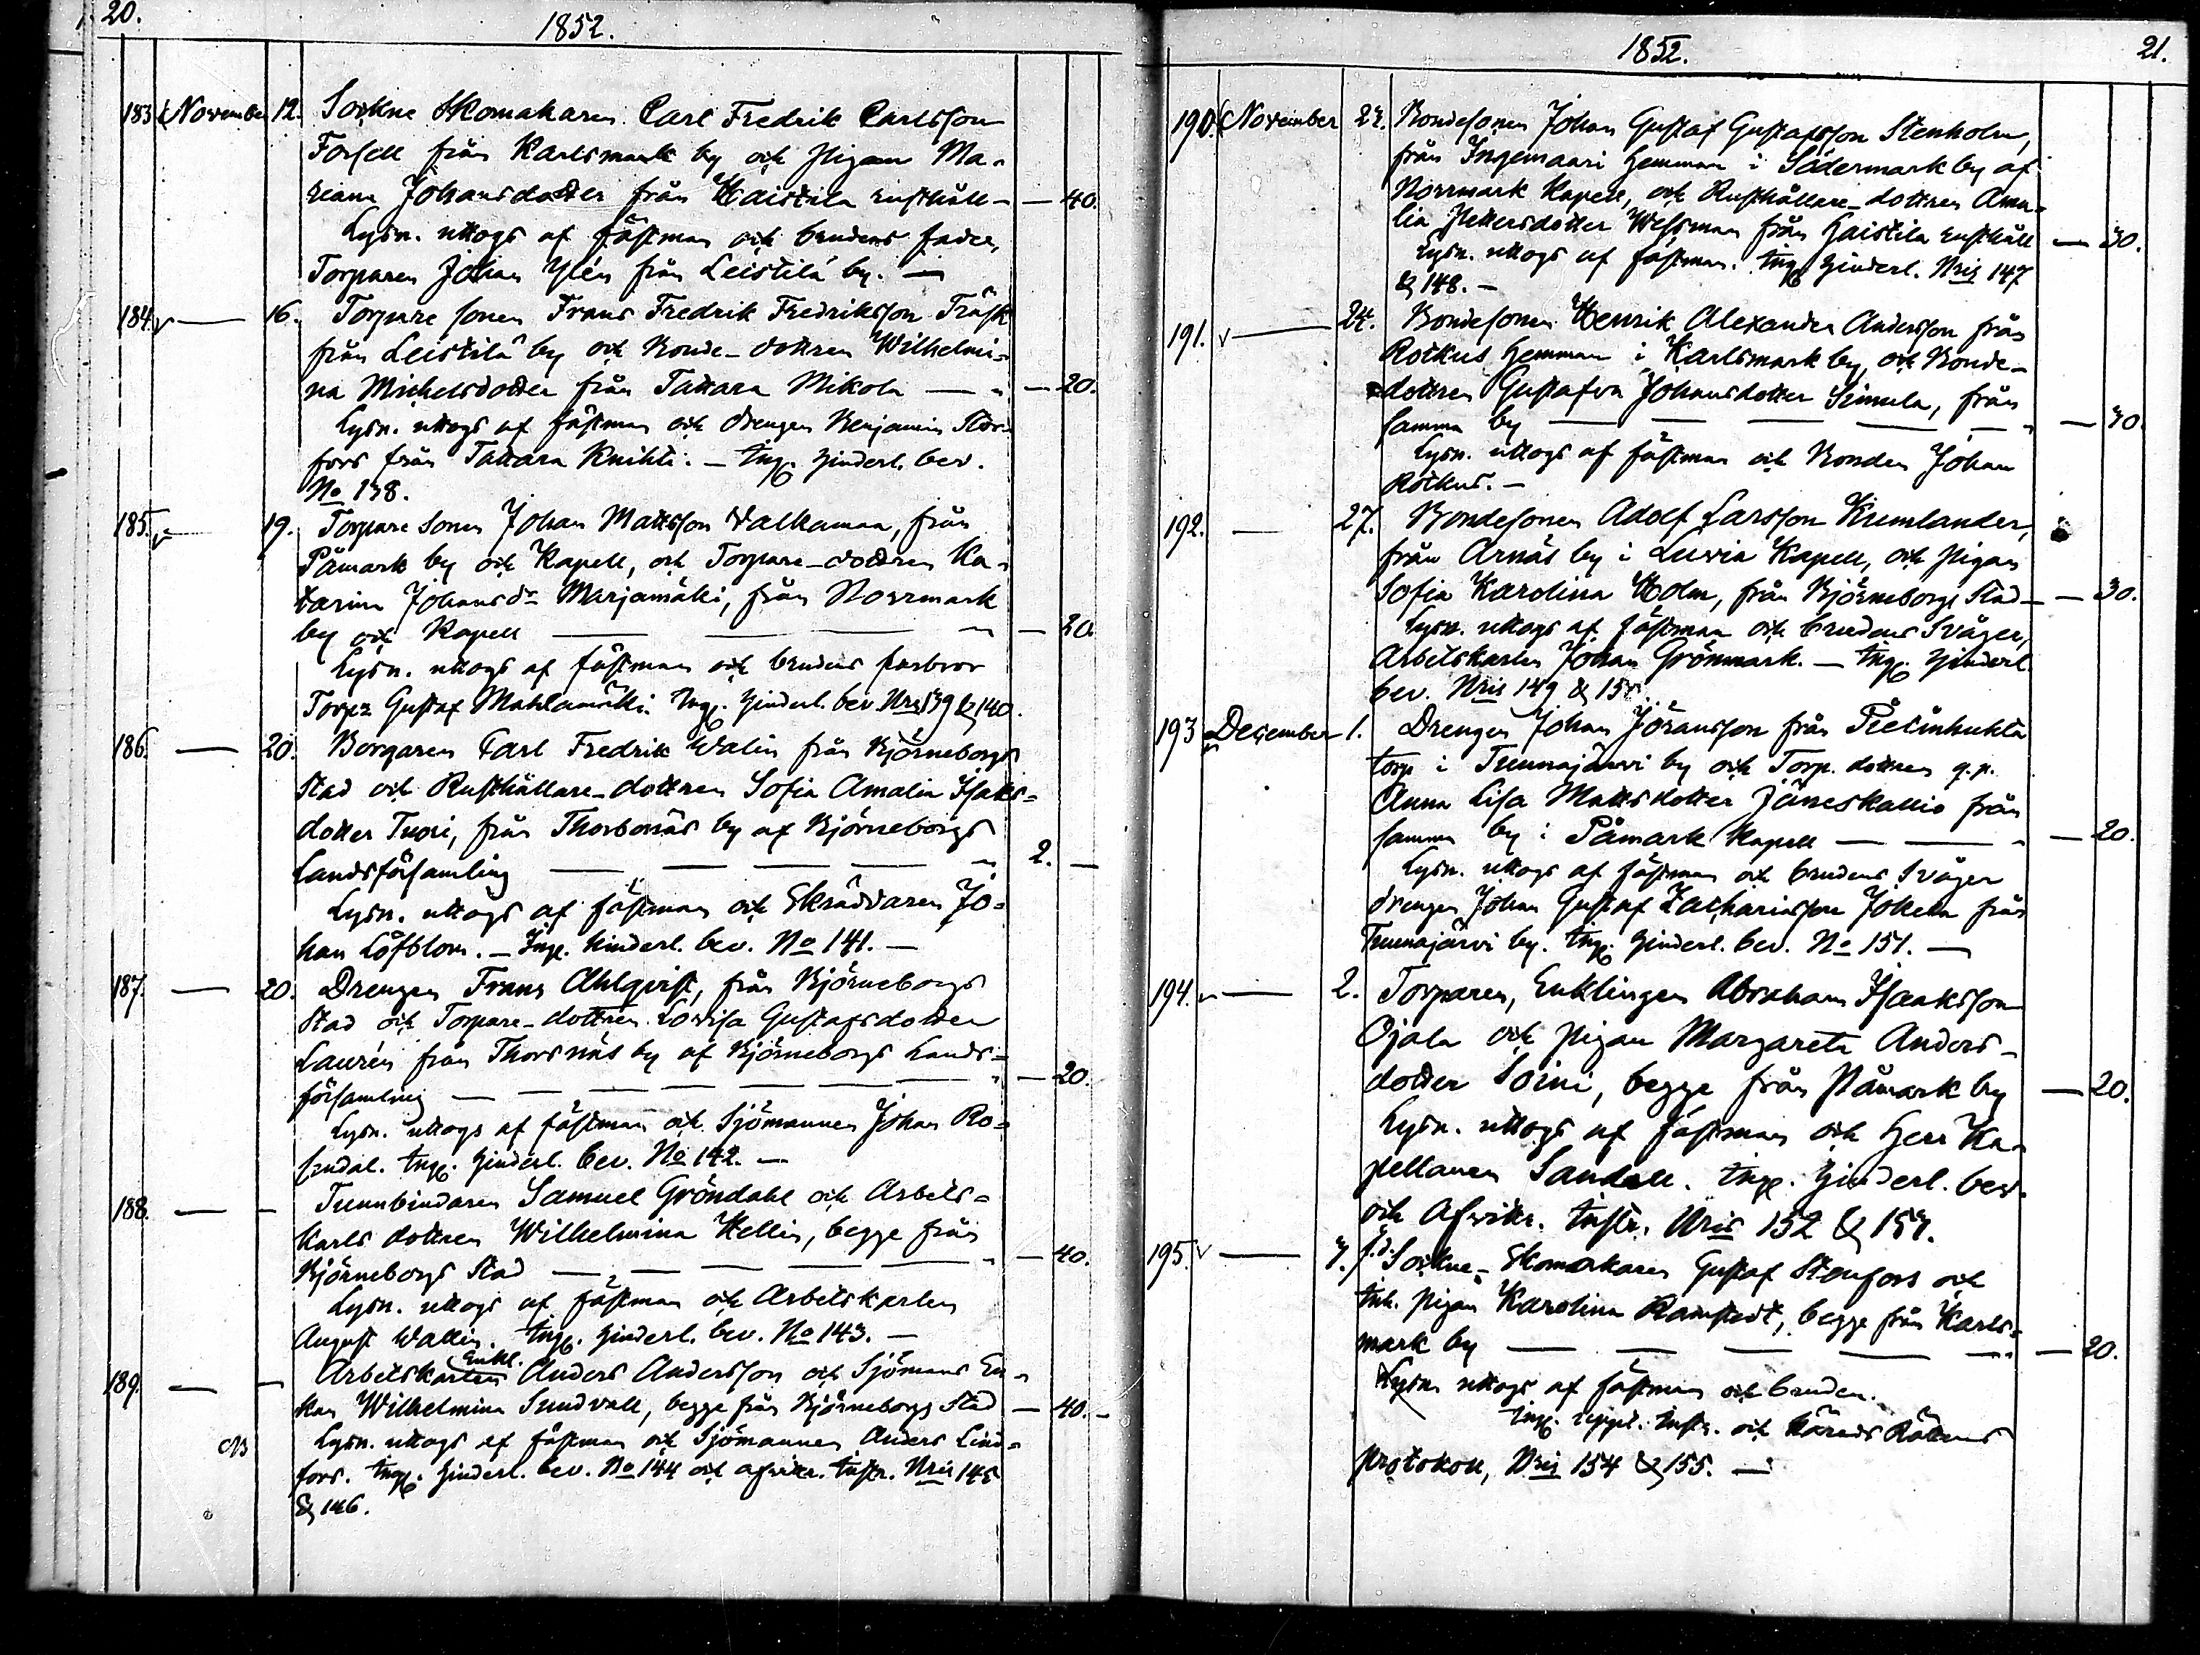 20.
1852.
183 November 12. Sockne Skomakaren Carl Fredrik Carlsson
Forsell från Karlsmark by och Pigan Ma-
riana Johansdotter från Haistila rusthåll — — 40.
Lysn. uttogs af fästman och brudens fader,
Torparen Johan Ylén från Leistilä by. —
184. — 16. Torpare sonen Frans Fredrik Fredriksson Träsk
från Leistilä by och Bonde-dottren Wilhelmi-
na Michelsdotter från Tattara Mikola — " — 20.
Lysn. uttogs af fästman och drengen Benjamin
fors från Tattara Knihti. — Ing. hinderl. bev.
No 138.
185. — 19. Torpare Sonen Johan Mattsson Valkama, från
Påmark by och Kapell, och Torpare-dottren Ka-
tarina Johansdr Marjamäki, från Norrmark
by och Kapell — — — " — 20.
Lysn. uttogs af fästman och brudens farbror
Torpr Gustaf Mahlamäki. Ing. hinderl. bev. Nris 139 & 140.
186. — 20. Borgaren Carl Fredrik Walin från Björneborgs
Stad och Rusthållare-dottren Sofia Amalia Isaks-
dotter Tuori, från Thorsnäs by af Björneborgs
Landsförsamling — — — — " 2. —
Lysn. uttogs af fästman och Skräddaren Jo-
han Löfblom. — Ing. hinderl. bev. No 141. —
187. — 20. Drengen Frans Ahlqvist, från Björneborgs
Stad och Torpare-dottren Lovisa Gustafsdotter
Laurén från Thorsnäs by af Björneborgs Lands-
församling — — — — — " — 20.
Lysn. uttogs af fästman och Sjömannen Johan Ro-
sendal. Ing. hinderl. bev. No 142. —
188. — — Tunnbindaren Samuel Gröndahl och Arbets-
karls dottren Wilhelmina Hellin, begge från
Björneborgs Stad — — — — " — 40.
Lysn. uttogs af fästman och Arbetskarlen
August Wallin. Ing. hinderl. bev. No 143. —
Enkl.
189. — — Arbetskarlen Anders Andersson och Sjömans En-
kan Wilhelmina Sundvall, begge från Björneborgs Stad — 40. —
Lysn. uttogs af fästman och Sjömannen Anders Lind-
fors. Ing. hinderl. bev. No 144 och afwittr. Instr. Nris 145
& 146.
1852. 21.
190. November 23. Bondesonen Johan Gustaf Gustafsson Stenholm,
från Ingemaari hemman i Södermark by af
Norrmark Kapell, och Rusthållare-dottren Ama-
lia Pettersdotter Wessman från Haistila rusthåll — 30.
Lysn. uttogs af fästman. Ing. hinderl. Nris 147
& 148. —
191. — 24. Bondesonen Henrik Alexander Andersson från
Rotkus hemman i Karlsmark by, och Bonde-
dottren Gustafva Johansdotter Simula, från
samma by — — — — — " — 30.
Lysn. uttogs af fästman och Bonden Johan
Rotkus. —
192. — 27. Bondesonen Adolf Larsson Krumlander,
från Arnäs by i Luvia Kapell, och Pigan
Sofia Karolina Holm, från Björneborgs Stad — — 30.
Lysn. uttogs af fästman och brudens Svåger,
Arbetskarlen Johan Grönmark. — Ing. hinderl.
bev. Nris 149 & 150.
193 December 1. Drengen Johan Jöransson från
torp i Tuunajärvi by och Torp. dottren q.p.
Anna Lisa Mattsdotter Jäneskallio från
samma by i Påmark Kapell — — " — 20.
Lysn. uttogs af fästman och brudens Svåger
drengen Johan Gustaf Zachariasson Jokela från
Tuunajärvi by. Ing. hinderl. bev. No 151. —
194. — 2. Torparen, Enklingen Abraham Isaaksson
Ojala och pigan Margareta Anders-
dotter Soini, begge från Påmark by — 20.
Lysn. uttogs af fästman och Herr Ka-
pellanen Sandell. Ing. hinderl. bev.
och Afwittr. Instr. Nris 152 & 153.
195. — 3. f.d. Sockne-Skomakaren Gustaf Stenfors och
Inh. pigan Karolina Ramstedt, begge från Karls-
mark by — — — — — " — 20.
Lysn uttogs af fästman och bruden.
Ing. uppt. Instr. och Härads Rättens
protokoll, Nris 154 & 155. —